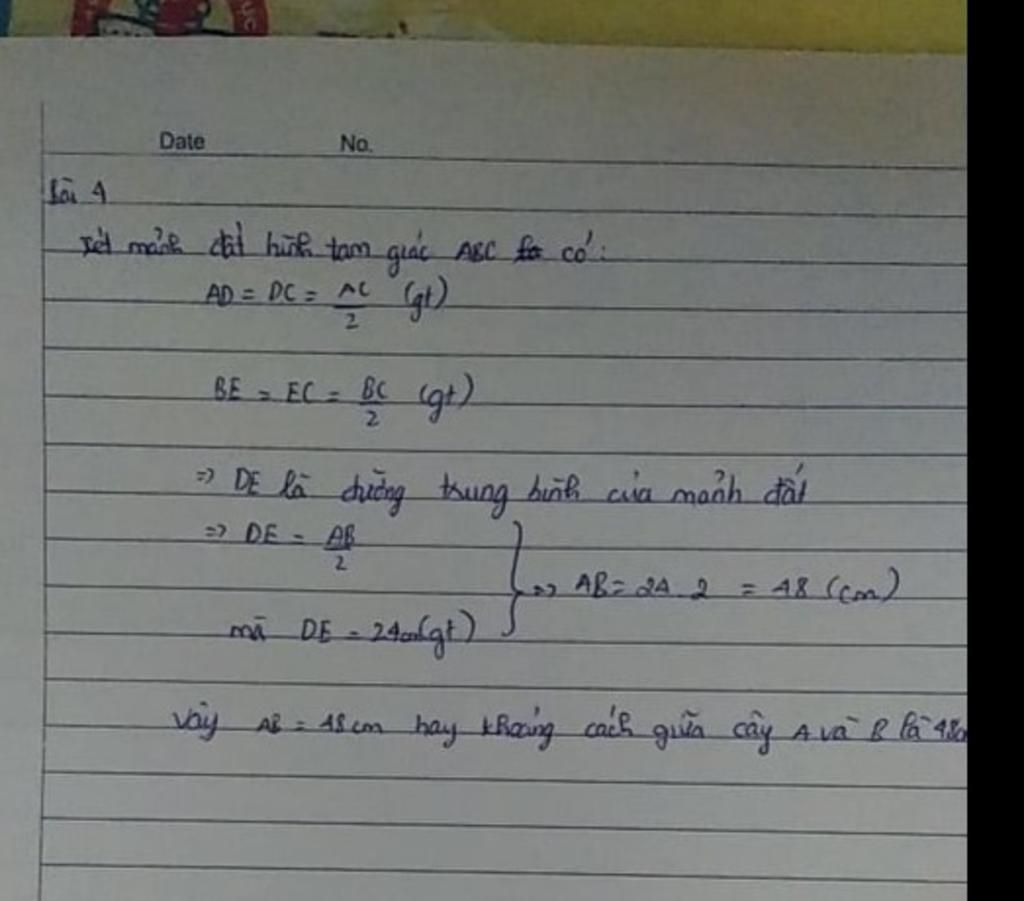 UC
Date No.
Bài 4
Xét mảnh đất hình tam giác ABC có:
AD = DC = AC/2 (gt)
BE = EC = BC/2 (gt)
=> DE là đường trung bình của mảnh đất
=> DE = AB/2
=> AB = 24 . 2 = 48 (cm)
mà DE = 24cm(gt)
Vậy AB = 48 cm hay khoảng cách giữa cây A và B là 48c